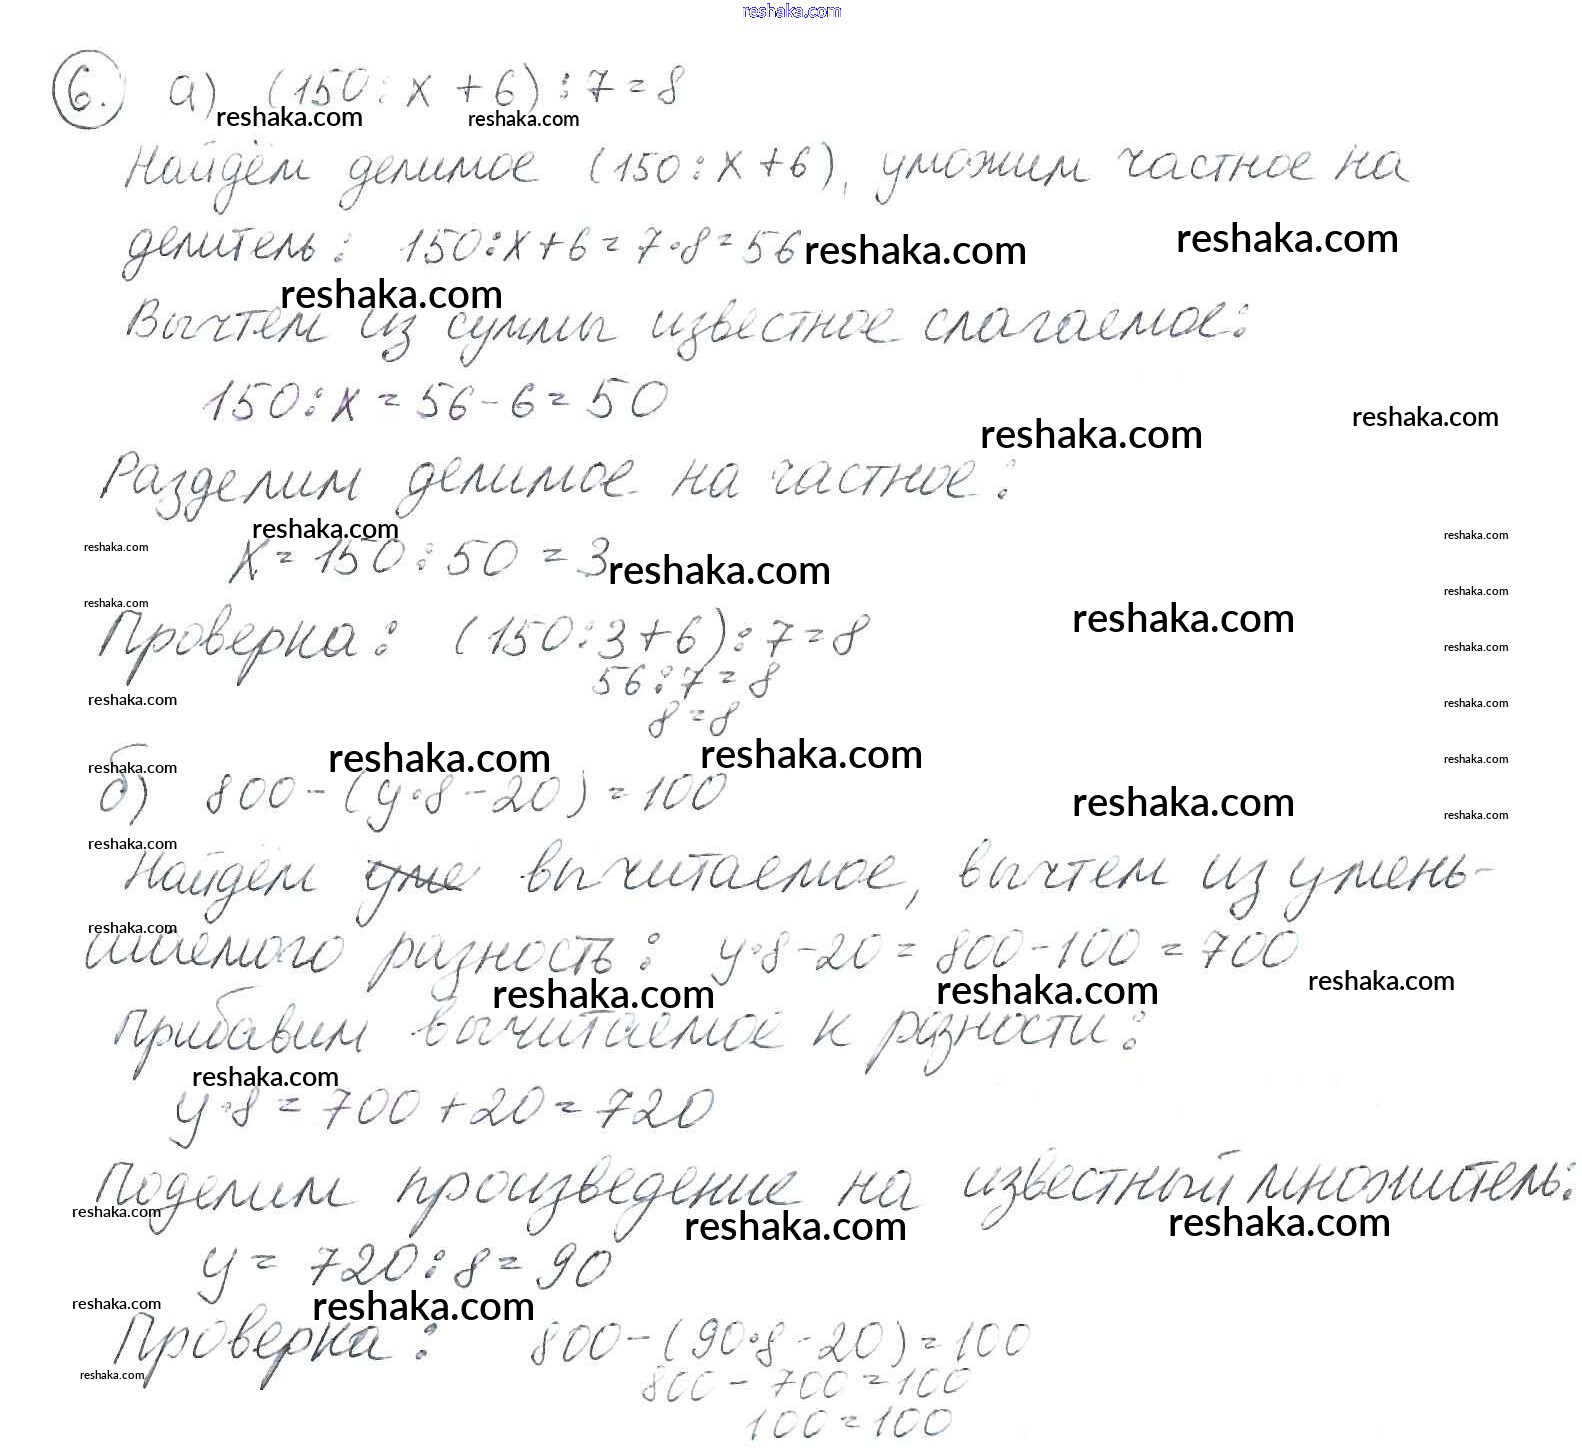 reshaka.com
6. а) (150 : x + 6) : 7 = 8
reshaka.com reshaka.com
Найдём делимое (150 : x + 6), умножим частное на
делитель: 150 : x + 6 = 7 · 8 = 56 reshaka.com reshaka.com
reshaka.com
Вычтем из суммы известное слагаемое:
150 : x = 56 - 6 = 50
reshaka.com reshaka.com
Разделим делимое на частное:
reshaka.com reshaka.com
reshaka.com x = 150 : 50 = 3 reshaka.com
reshaka.com
reshaka.com reshaka.com
Проверка: (150 : 3 + 6) : 7 = 8
reshaka.com
56 : 7 = 8
reshaka.com reshaka.com
8 = 8
reshaka.com reshaka.com reshaka.com
reshaka.com
б) 800 - (y · 8 - 20) = 100 reshaka.com
reshaka.com
reshaka.com
Найдём уме вычитаемое, вычтем из умень-
reshaka.com
шаемого разность: y · 8 - 20 = 800 - 100 = 700
reshaka.com reshaka.com reshaka.com
Прибавим вычитаемое к разности:
reshaka.com
y · 8 = 700 + 20 = 720
Поделим произведение на известный множитель:
reshaka.com reshaka.com reshaka.com
y = 720 : 8 = 90
reshaka.com reshaka.com
Проверка: 800 - (90 · 8 - 20) = 100
reshaka.com 800 - 700 = 100
100 = 100